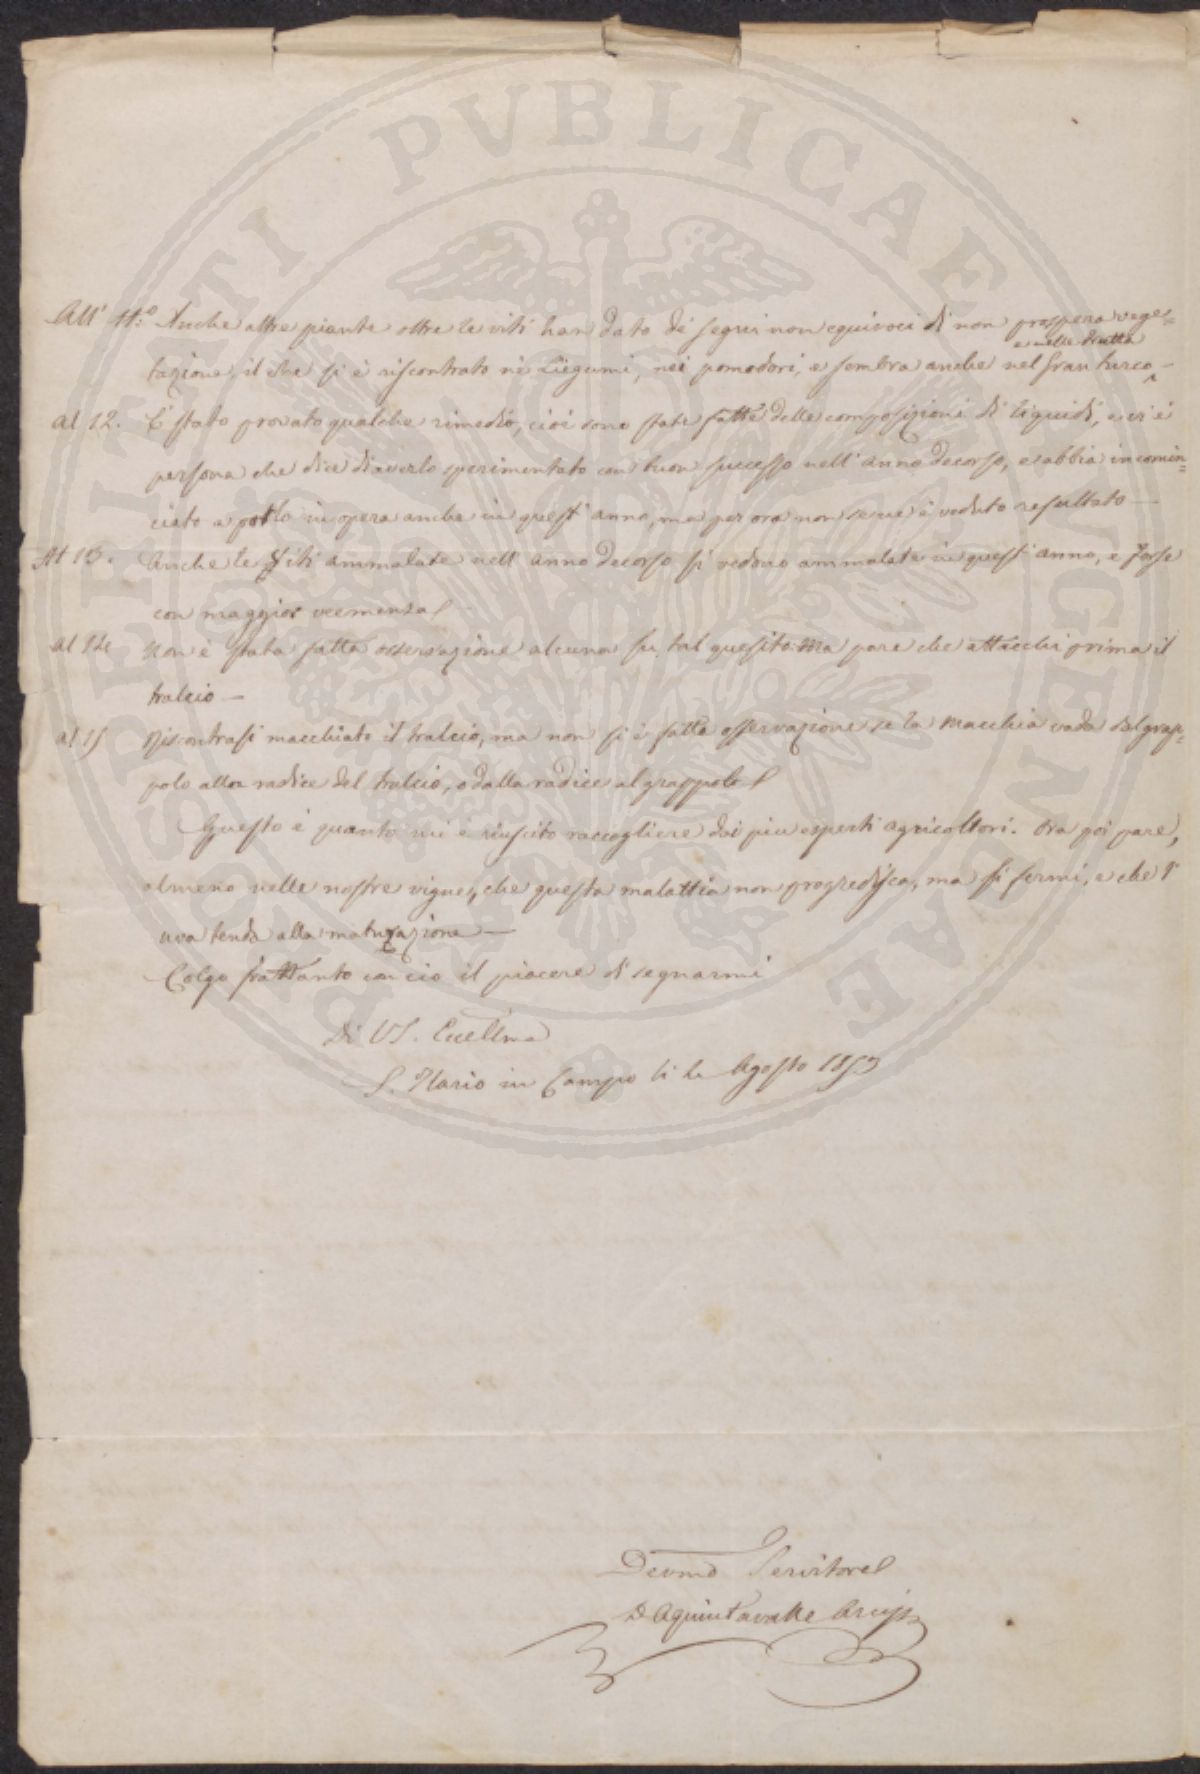 All' 11.° Anche altre piante oltre le viti han dato de' segni non equivoci di non prospera vege=
e nelle frutta
tazione, il che si è riscontrato ne' Liegumi, nei pomodori, e sembra anche nel Gran turco
al 12. È stato provato qualche rimedio, cioè sono state fatte delle composizioni di liquidi, e vi è
persona che dice di averlo sperimentato con buon successo nell'anno decorso, e abbia incomin=
ciato a porlo in opera anche in quest'anno, ma per ora non se ne è veduto resultato —
Al 13. Anche le Viti ammalate nell'anno decorso si vedono ammalate in quest'anno, e forse
con maggior veemenza
al 14 Non è stata fatta osservazione alcuna su tal quesito: Ma pare che attacchi prima il
tralcio —
al 15 Riscontrasi macchiato il tralcio, ma non si è fatta osservazione se la macchia vada dal grap=
polo alla radice del tralcio, o dalla radice al grappolo
Questo è quanto mi è riuscito raccogliere dai più esperti agricoltori. Ora poi pare,
almeno nelle nostre vigne, che questa malattia non progredisca, ma si fermi, e che l'
uva tenda alla maturazione —
Colgo frattanto con ciò il piacere di segnarmi
Di VS. Ecellma
S. Ilario in Campo li Agosto 1853
Devmo Servitore
PROSPERITATI PVBLICAE AVGENDAE